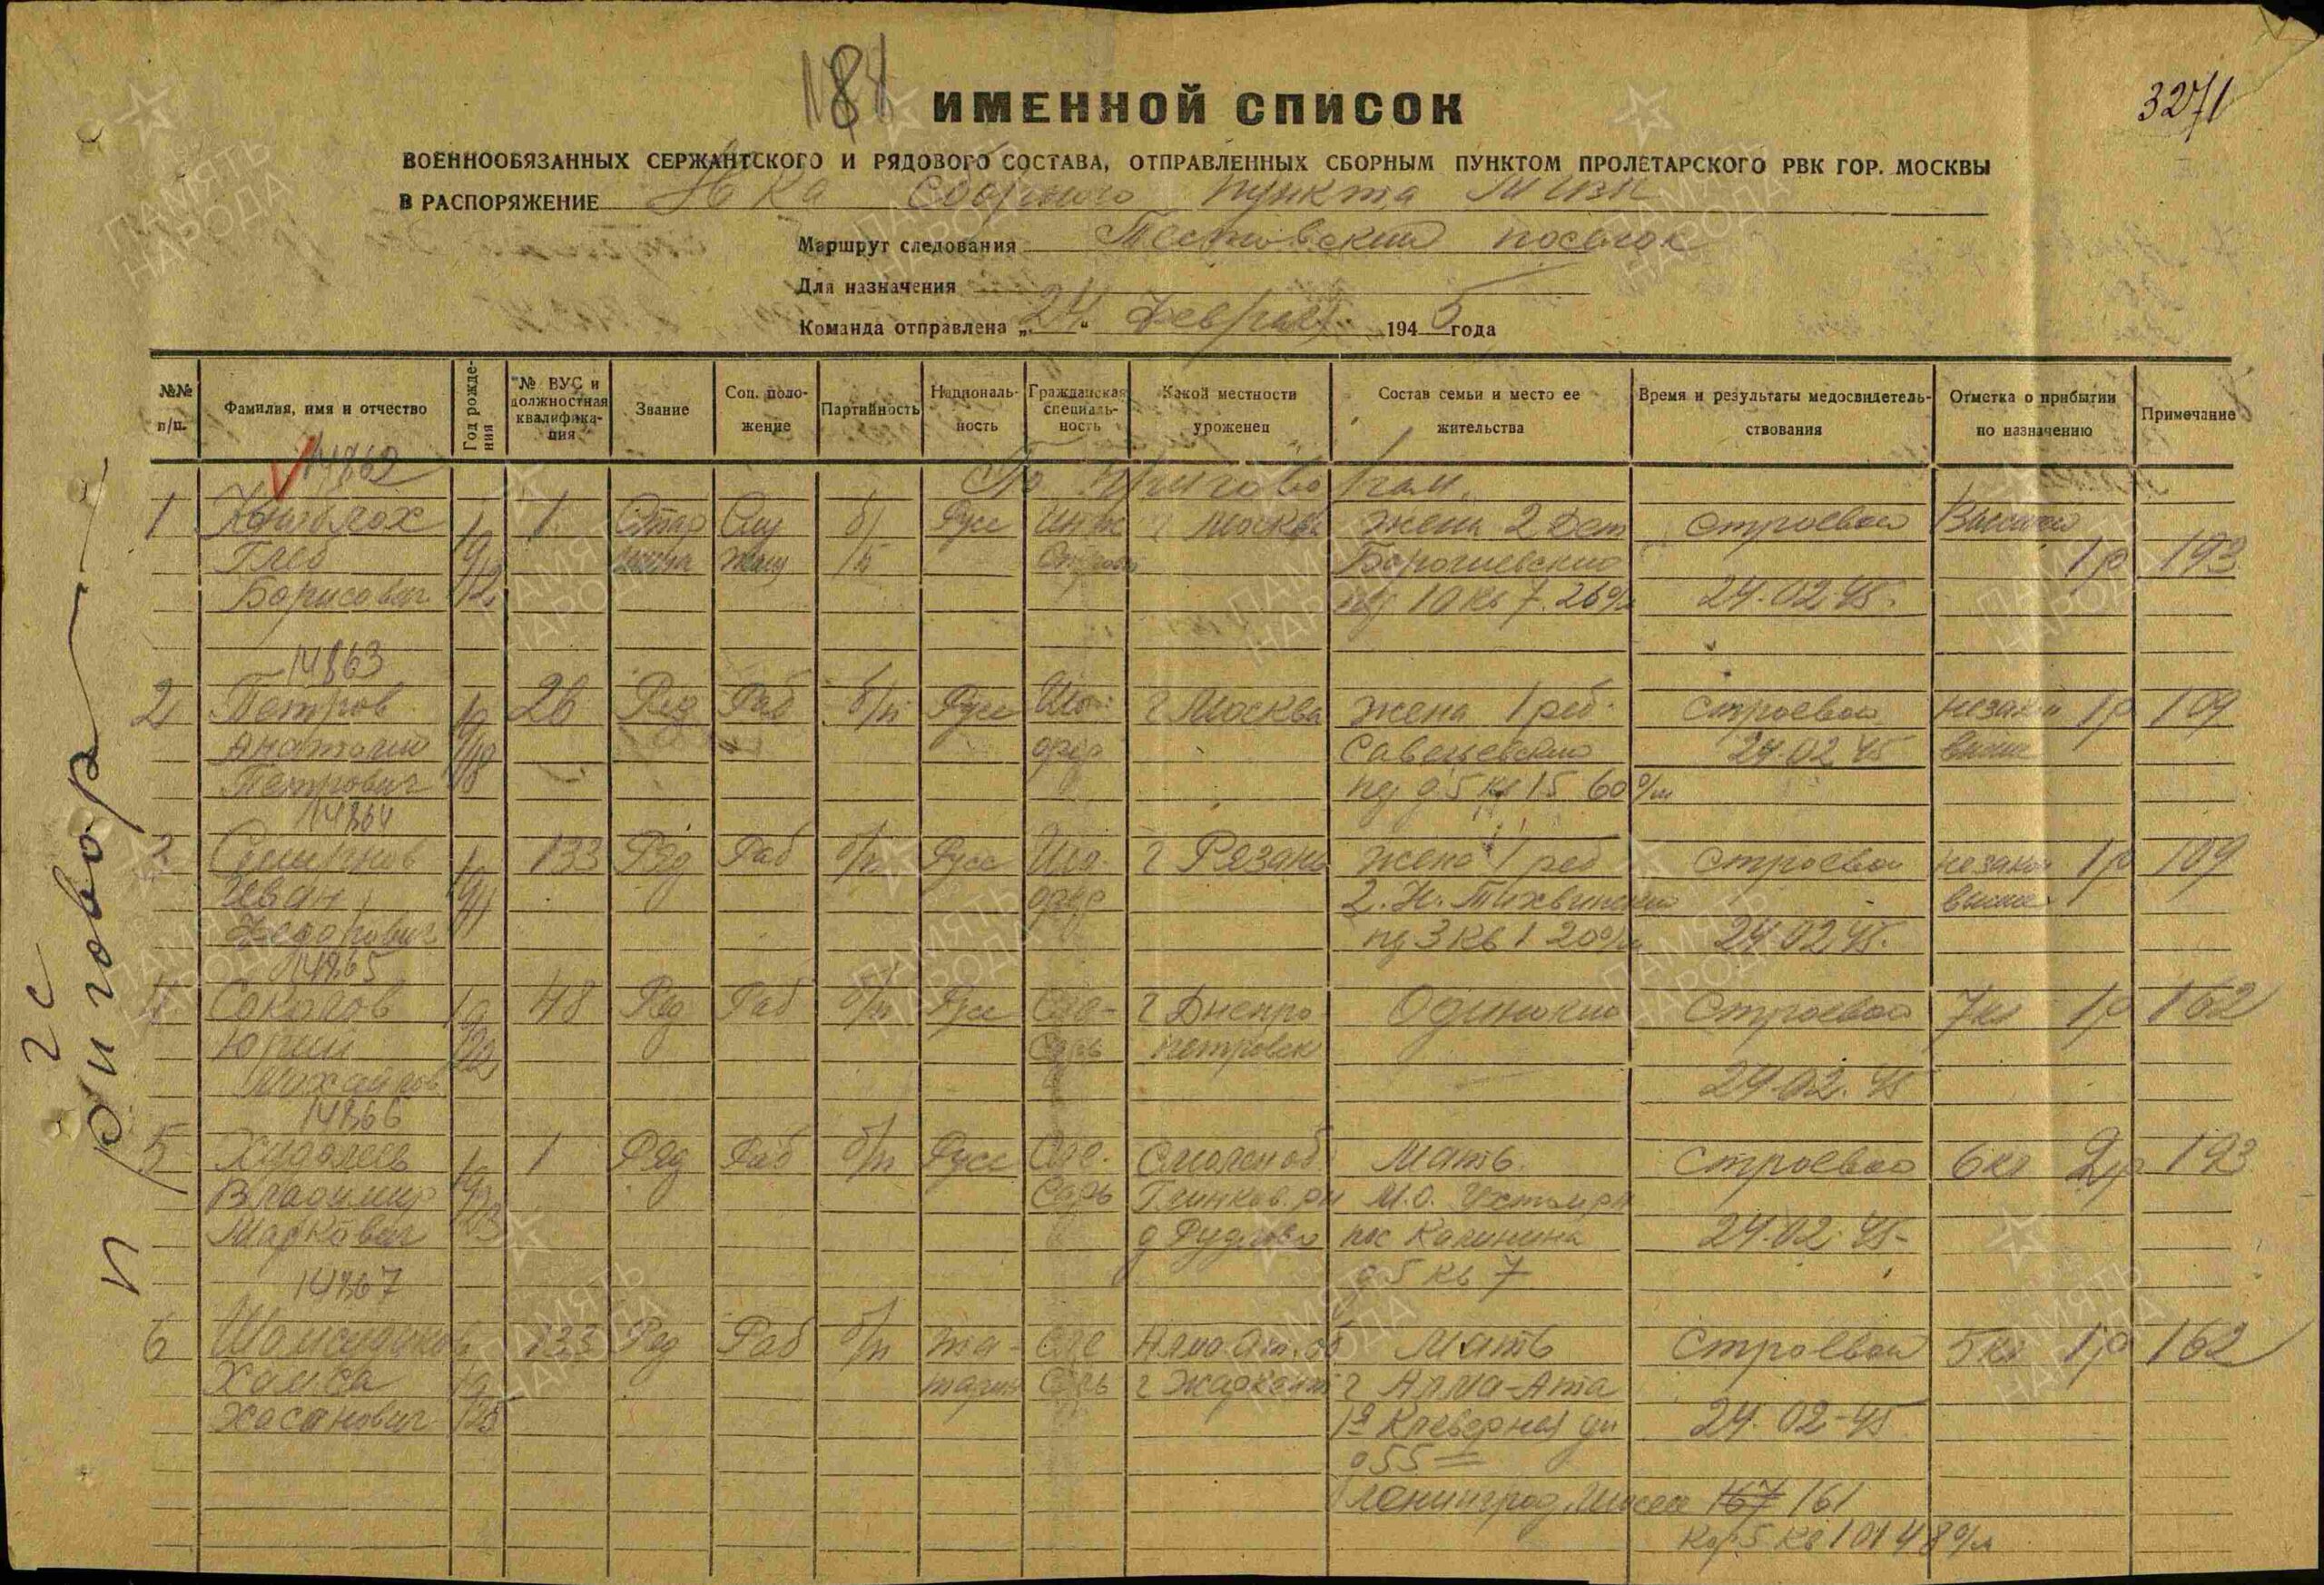 184
3271
ИМЕННОЙ СПИСОК
ВОЕННООБЯЗАННЫХ СЕРЖАНТСКОГО И РЯДОВОГО СОСТАВА, ОТПРАВЛЕННЫХ СБОРНЫМ ПУНКТОМ ПРОЛЕТАРСКОГО РВК ГОР. МОСКВЫ
В РАСПОРЯЖЕНИЕ Н-ка Сборного пункта
Маршрут следования Тестовский поселок
Для назначения
Команда отправлена „24" Февраля 1945 года
№№ п/п. Фамилия, имя и отчество Год рождения № ВУС и должностная квалификация Звание Соц. положение Партийность Национальность Гражданская специальность Какой местности уроженец Состав семьи и место ее жительства Время и результаты медосвидетельствования Отметка о прибытии по назначению Примечание
14862
По приговорам.
1 1 б/п Русс Москва жена 2 дет строевой
Глеб 1912 1р 193
Борисович 10 кв 7. 24.02.45.
14863
2 Петров 1918 26 Ряд Раб б/п Русс Шо- г Москва жена 1 реб. строевой 1р 109
Анатолий фер Савельевский 24.02.45
Петрович д.5 кв 15
14864
3 Смирнов 1911 133 Ряд Раб б/п Русс Шо- г Рязань жена 1 реб строевой 1р 109
Иван фер 2. Н. Тихвинский
Федорович 3 кв 1 24.02.45.
14865
4 Соколов 1922 48 Ряд Раб б/п Русс Сле- г Днепро Одинокий Строевой 7кл 1р 162
Юрий сарь петровск
Михайлов. 24.02.45
14866
5 1923 1 Ряд Раб б/п Русс Сле- Смолен об. Мать Строевой 6кл 2р 193
Владимир сарь Глинков. рн М.О. Ухтом рн
Маркович пос Калинина 24.02.45
д 5 кв 7
14867
6 1925 133 Ряд Раб б/п та- Сле Алма-Ат. об Мать Строевой 5кл 1р 162
Хамза тарин сарь г Жаркент г Алма-Ата
Хасанович 1я Клеверная ул 24.02.45
д 55
Ленинград. Шоссе 161
Кор 5 кв 101
2с
приговор
ПАМЯТЬ НАРОДА